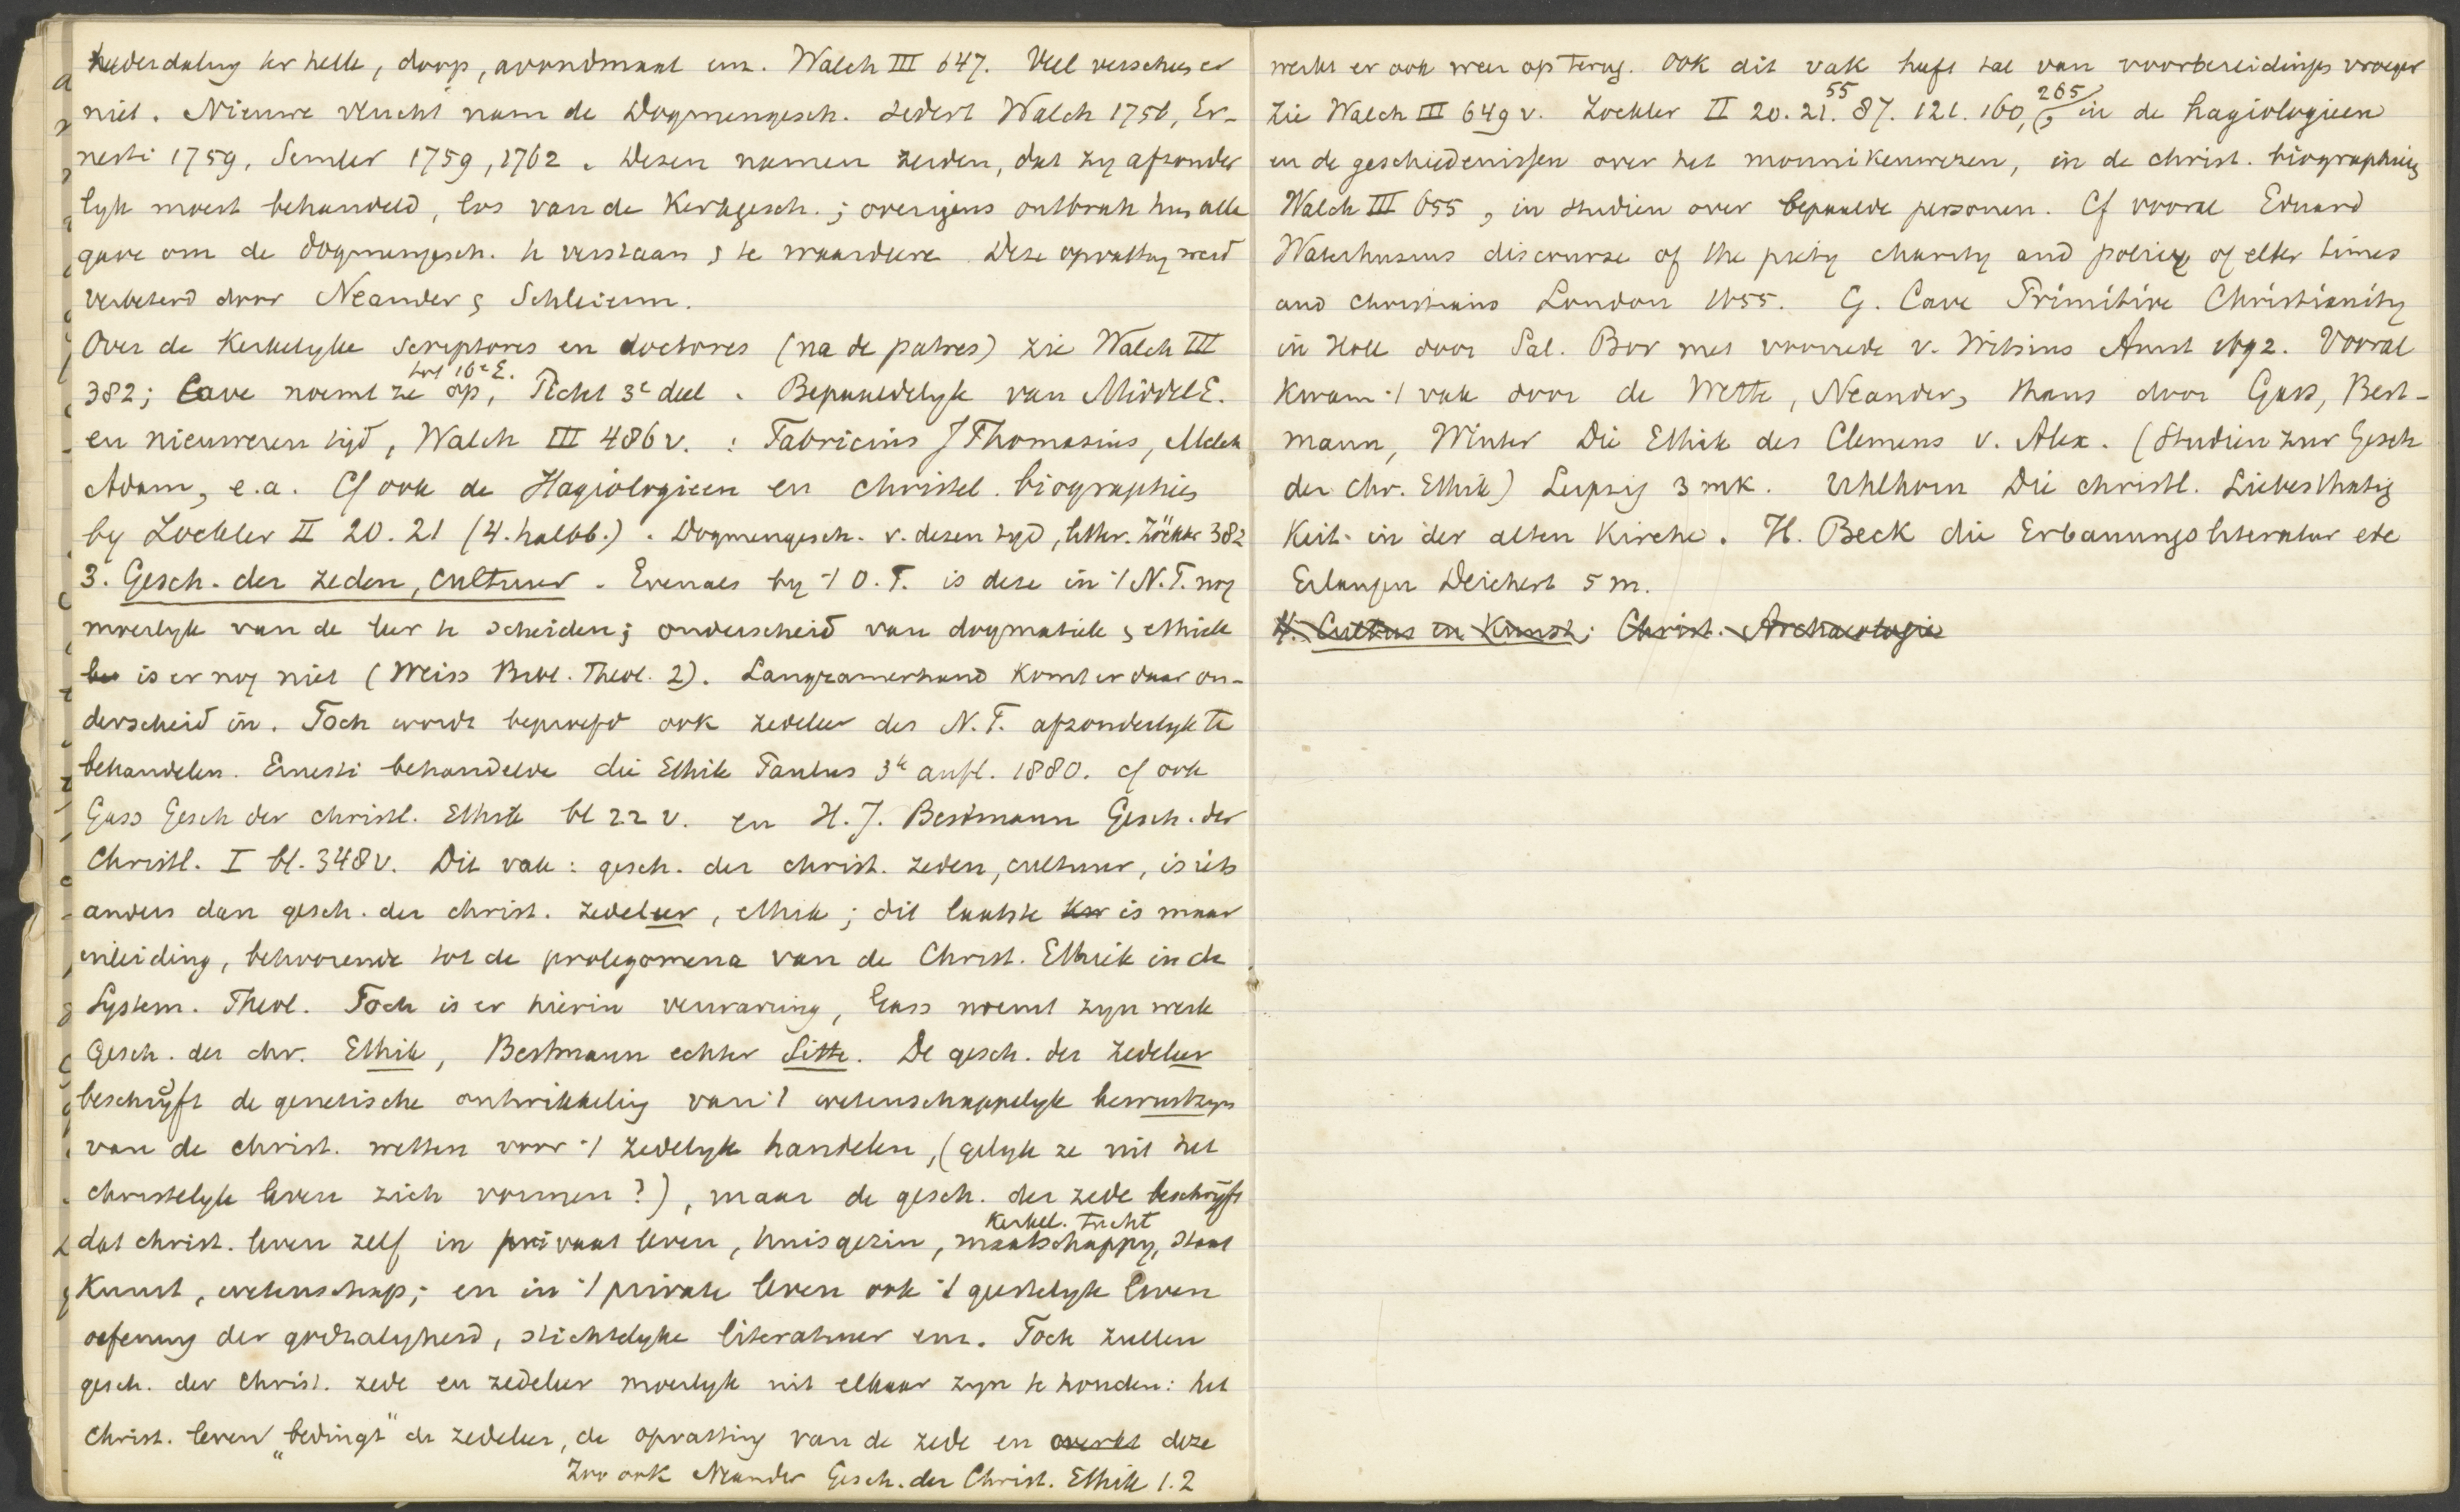 nederdaling ter helle, doop, avondmaal enz. Walch III 647. Veel verschees er
niet. Nieuwe vlucht nam de Dogmengesch. sedert Walch 1756, Er-
nesti 1759, Semler 1759, 1762. Dezen namen zeiden, dat zy afzonder
lyk moest behandeld, los van de Kerkgesch.; overigens ontbrak hun alle
gave om de dogmengesch. te verstaan & te waardeere. Deze opvatting werd
verbeterd door Neander & Schleierm.
Over de Kerkelyke scriptores en doctores (na de patres) zie Walch III
tot 16e E.
382; Cave noemt ze op, 3e deel. Bepaaldelyk van Middel E.
en nieuweren tyd, Walch III 486 v. : Fabricius J Thomasius, Melch
Adam, e.a. Cf ook de Hagiologieen en christel. biographies
by Zockler II 20. 21 (4. halbb.). Dogmengesch. v. dezen tyd, litter. Zöckler 382
3. Gesch. der zeden, cultuur. Evenals by 't O.T. is deze in 't N.T. nog
moeilyk van de leer te scheiden; onderscheid van dogmatiek & ethiek
is er nog niet (Weiss Bibl. Theol. 2). Langzamerhand komt er daar on-
derscheid in. Toch wordt beproefd ook zedeleer des N.T. afzonderlyk te
behandelen. Ernesti behandelde die Ethik Paulus 3e aufl. 1880. cf ook
Gass Gesch der christl. Ethik bl 22 v. en H. J. Bestmann Gesch. der
Christl. I bl. 348 v. Dit vak: gesch. der christ. zeden, cultuur, is iets
anders dan gesch. der christ. zedeleer, ethiek; dit laatste is maar
inleiding, behoorende tot de prolegomena van de Christ. Ethiek in de
System. Theol. Toch is er hierin verwarring, Gass noemt zyn werk
Gesch. der chr. Ethik, Bestmann echter Sitte. De gesch. der zedeleer
beschryft de genetische ontwikkeling van 't wetenschappelyk bewustzyn
van de christ. wetten voor 't zedelyk handelen, (gelyk ze uit het
christelyk leven zich vormen?), maar de gesch. der zede beschryft
Kerkel. tucht
dat christ. leven zelf in privaat leven, huisgezin, maatschappy, staat
Kunst, wetenschap; en in 't private leven ook 't geestelyk leven
oefening der godzaligheid, stichtelyke literatuur enz. Toch zullen
gesch. der Christ. zede en zedeleer moeilyk uit elkaar zyn te houden: het
Christ. leven "bedingt" de zedeleer, de opvatting van de zede en werkt deze
Zoo ook Neander Gesch. der Christ. Ethik 1.2
werkt er ook weer op terug. Ook dit vak heeft tal van voorbereidings vroeger
55 265
Zie Walch III 649 v. Zockler II 20. 21. 87. 121. 160, in de hagiologieen
en de geschiedenissen over het monnikenwezen, in de christ. biographies
Walch III 655, in studien over bepaalde personen. Cf vooral Eduard
Waterhusius discourse of the piety charity and policy of elter times
and christians London 1655. G. Cave Primitive Christianity
in Holl door Sal. Bor met voorrede v. Witsius Amst 1692. Vooral
kwam 't vak door de Wette, Neander, thans door Gass, Best-
mann, Winter Die Ethik des Clemens v. Alex. (Studien zur Gesch
der Chr. Ethik) Leipzig 3 mk. Uhlhorn Die christl. Liebesthätig
keit in der alten Kirche. H. Beck die Erbauungsliteratur etc
Erlangen Deichert 5 m.
4. Cultus en Kunst; Christ. Archaeologie